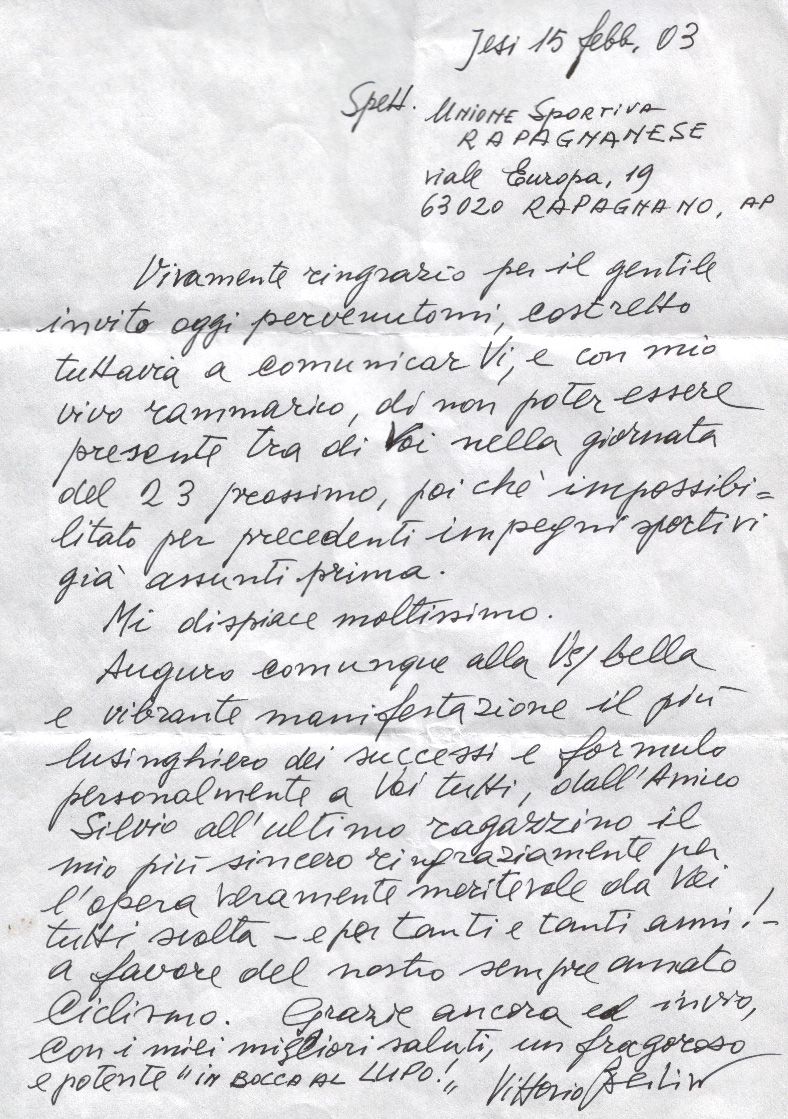 Jesi 15 febb. 03
Spett. Unione Sportiva
RAPAGNANESE
viale Europa, 19
63020 RAPAGNANO, AP
Vivamente ringrazio per il gentile
invito oggi pervenutomi, costretto
tuttavia a comunicarVi, e con mio
vivo rammarico, di non poter essere
presente tra di Voi nella giornata
del 23 prossimo, poiché impossibi=
litato per precedenti impegni sportivi
già assunti prima.
Mi dispiace moltissimo.
Auguro comunque alla Vs/ bella
e vibrante manifestazione il più
lusinghiero dei successi e formulo
personalmente a Voi tutti, dall'Amico
Silvio all'ultimo ragazzino il
mio più sincero ringraziamente per
l'opera veramente meritevole da Voi
tutti svolta – e per tanti e tanti anni! –
a favore del nostro sempre amato
Ciclismo. Grazie ancora ed invio,
con i miei migliori saluti, un fragoroso
e potente "IN BOCCA AL LUPO!" Vittorio